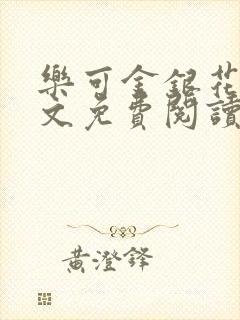 樂可金銀花
文免費閱讀
黃澄鋒